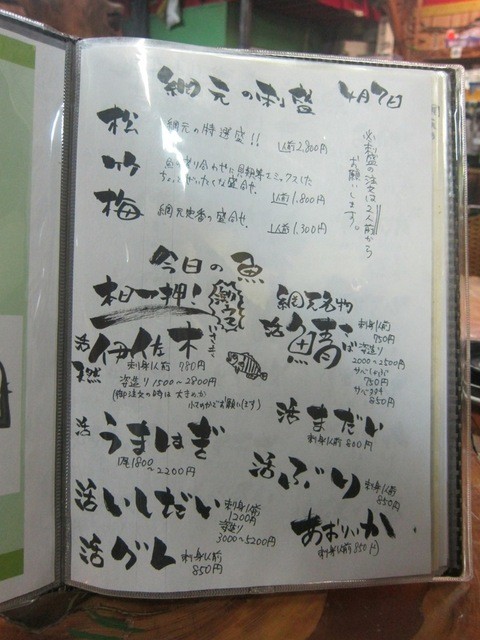 網元の刺盛 4月7日
松 網元の特選盛!! 1人前2,800円
竹
ちょっとぜいたくな盛合せ. 1人前1,800円
梅 網元定番の盛合せ. 1人前1,300円
※刺盛の注文は2人前から
お願いします。
今日の魚
本日一押!
活 天然 伊佐木 いさき
刺身1人前 780円
姿造り 1500〜2800円
(御注文の時は 大きめか
小さめかでお願いします)
活 うまはぎ
1尾1800
〜2200円
活 いしだい 刺身1人前
1200円
姿造り
3000〜5200円
活 グレ 刺身1人前
850円
網元名物
活 鯖 さば
刺身1人前
750円
姿造り
2000〜2500円
サバしゃぶ
750円
850円
活 まだい
刺身1人前 800円
活 ぶり 刺身1人前
850円
あおりいか
(刺身1人前 850円)